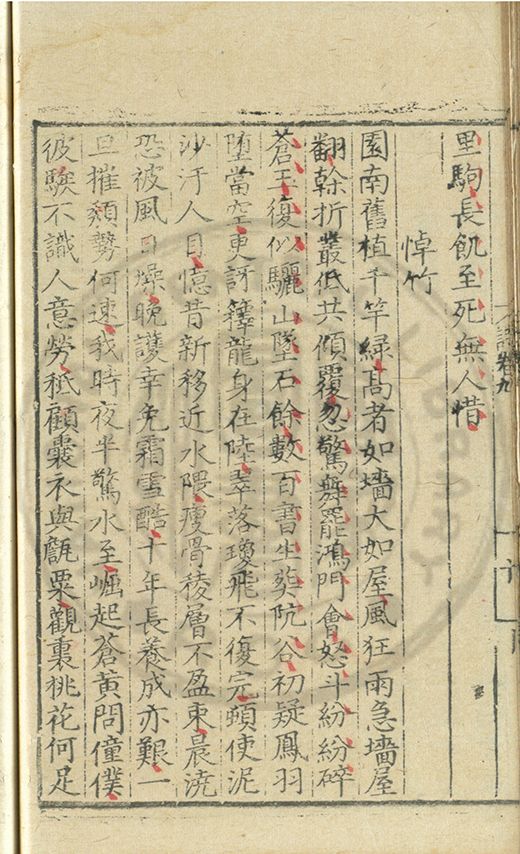 里駒長飢至死無人惜
悼竹
園南舊植千竿綠高者如墻大如屋風狂雨急墻屋
翻榦折叢低共傾覆忽驚舞罷鴻門會怒斗紛紛碎
蒼玉復似驪山墜石餘數百書生葬阬谷初疑鳳羽
墮當空更訝籜龍身在陸翠落瓊飛不復完頓使泥
沙汙人目憶昔新移近水隈瘦骨稜層不盈束晨澆
恐被風日燥晚護幸免霜雪酷十年長養成亦艱一
旦摧頹勢何速我時夜半驚水至崛起蒼黃問僮僕
彼騃不識人意勞秪顧囊衣與甔粟觀裏桃花何足
卷九